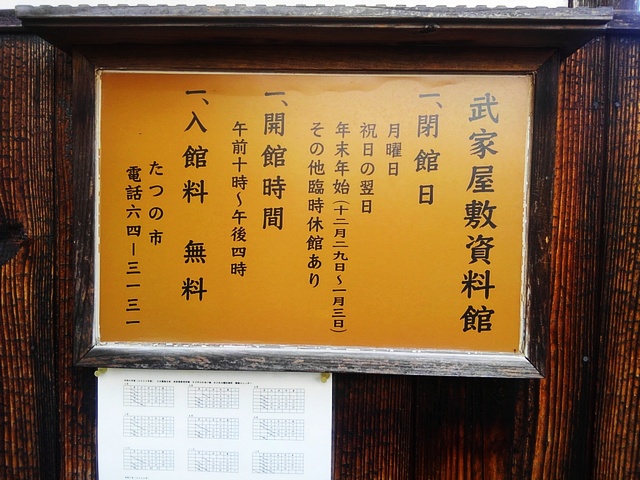 武家屋敷資料館
一、閉館日
月曜日
祝日の翌日
年末年始(十二月二九日〜一月三日)
その他臨時休館あり
一、開館時間
午前十時〜午後四時
一、入館料 無料
たつの市
電話六四ー三一三一